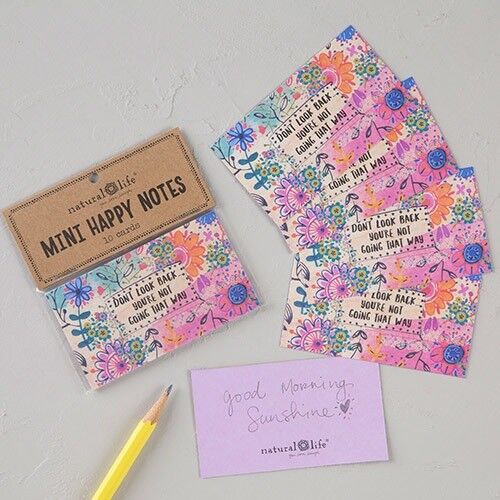 natural life®
MINI HAPPY NOTES
10 cards
DON'T LOOK BACK
YOU'RE NOT
GOING THAT WAY
DON'T LOOK BACK
YOU'RE NOT
GOING THAT WAY
NOT
GOING THAT WAY
DON'T LOOK BACK
YOU'RE NOT
GOING THAT WAY
LOOK BACK
YOU'RE NOT
GOING THAT WAY
Good Morning
Sunshine
natural life®